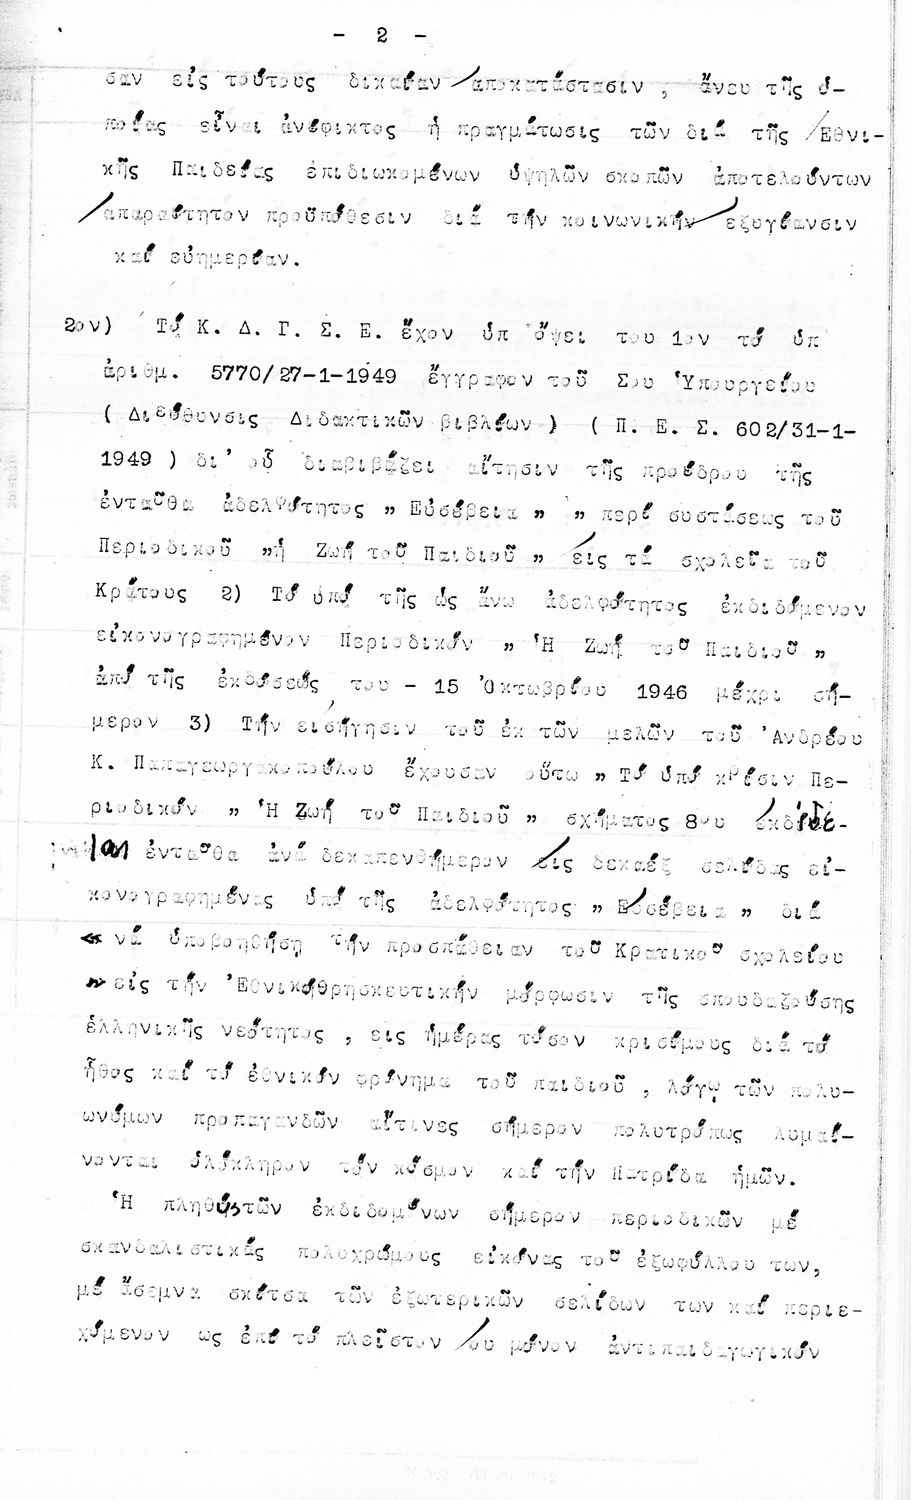 - 2 -
σαν εἰς τούτους δικαίαν ἀποκατάστασιν , ἄνευ τῆς ὁ-
ποίας εἶναι ἀνέφικτος ἡ πραγμάτωσις τῶν διά τῆς Ἐθνι-
κῆς Παιδείας ἐπιδιωκομένων ὑψηλῶν σκοπῶν ἀποτελούντων
ἀπαραίτητον προϋπόθεσιν διά τήν κοινωνικήν ἐξυγίανσιν
καί εὐημερίαν.
2ον) Τό Κ. Δ. Γ. Σ. Ε. ἔχον ὑπ ὄψει του 1ον τό ὑπ
ἀριθμ. 5770/27-1-1949 ἔγγραφον τοῦ Σου Ὑπουργείου
( Διεύθυνσις Διδακτικῶν βιβλίων ) ( Π. Ε. Σ. 602/31-1-
1949 ) δι' οὗ διαβιβάζει αἴτησιν τῆς προέδρου τῆς
ἐνταῦθα ἀδελφότητος „ Εὐσέβεια „ „ περί συστάσεως τοῦ
Περιοδικοῦ „ἡ Ζωή τοῦ Παιδιοῦ „ εἰς τά σχολεῖα τοῦ
Κράτους 2) Τό ὑπό τῆς ὡς ἄνω ἀδελφότητος ἐκδιδόμενον
εἰκονογραφημένον Περιοδικόν „ Ἡ Ζωή τοῦ Παιδιοῦ „
ἀπό τῆς ἐκδόσεώς του - 15 Ὀκτωβρίου 1946 μέχρι σή-
μερον 3) Τήν εἰσήγησιν τοῦ ἐκ τῶν μελῶν τοῦ Ἀνδρέου
Κ. Παπαγεωργακοπούλου ἔχουσαν οὕτω „ Τό ὑπό κρίσιν Πε-
ριοδικόν „ Ἡ Ζωή τοῦ Παιδιοῦ „ σχήματος 8ου ἐκδίδε-
ται ἐνταῦθα ἀνά δεκαπενθήμερον εἰς δεκαέξ σελίδας εἰ-
κονογραφημένας ὑπό τῆς ἀδελφότητος „ Εὐσέβεια „ διά
« νά ὑποβοηθήσῃ τήν προσπάθειαν τοῦ Κρατικοῦ σχολείου
» εἰς τήν Ἐθνικοθρησκευτικήν μόρφωσιν τῆς σπουδαζούσης
ἑλληνικῆς νεότητος , εις ἡμέρας τόσον κρισίμους διά τό
ἦθος καί τό ἐθνικόν φρόνημα τοῦ παιδιοῦ , λόγῳ τῶν πολυ-
ωνύμων προπαγανδῶν αἵτινες σήμερον πολυτρόπως λυμαί-
νονται ὁλόκληρον τόν κόσμον καί τήν Πατρίδα ἡμῶν.
Ἡ πληθύς τῶν ἐκδιδομένων σήμερον περιοδικῶν μέ
σκανδαλιστικάς πολυχρώμους εἰκόνας τοῦ ἐξωφύλλου των,
μέ ἄσεμνα σκίτσα τῶν ἐξωτερικῶν σελίδων των καί περιε-
χόμενον ως ἐπί τό πλεῖστον ου μόνον ἀντιπαιδαγωγικόν